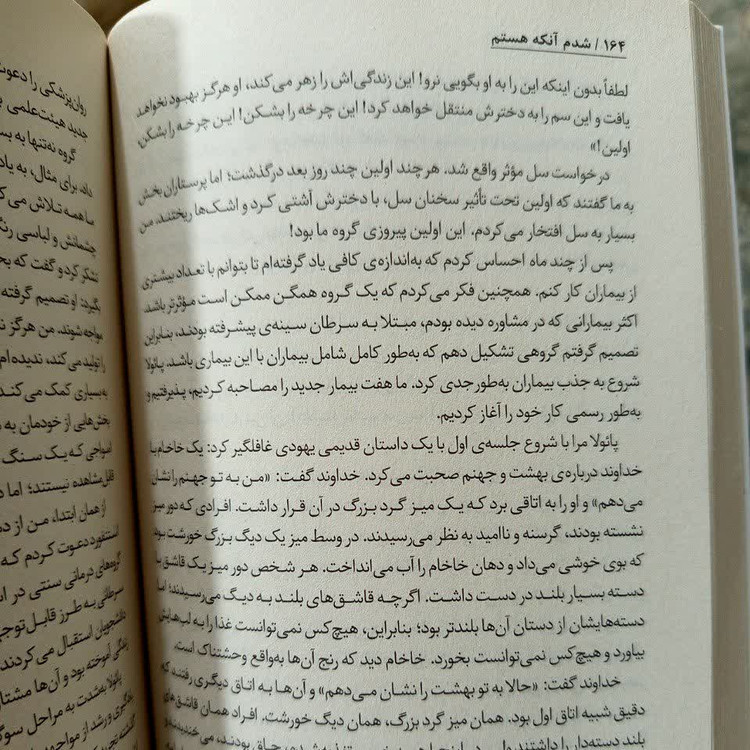 ۱۶۴ / شدم آنکه هستم
لطفاً بدون اینکه این را به او بگویی نرو! این زندگی‌اش را زهر می‌کند، او هرگز بهبود نخواهد
یافت و این سم را به دخترش منتقل خواهد کرد! این چرخه را بشکن! این چرخه را بشکن،
اولین!»
درخواست سل مؤثر واقع شد. هرچند اولین چند روز بعد درگذشت؛ اما پرستاران بخش
به ما گفتند که اولین تحت تأثیر سخنان سل، با دخترش آشتی کرد و اشک‌ها ریختند. من
بسیار به سل افتخار می‌کردم. این اولین پیروزی گروه ما بود!
پس از چند ماه احساس کردم که به‌اندازه‌ی کافی یاد گرفته‌ام تا بتوانم با تعداد بیشتری
از بیماران کار کنم. همچنین فکر می‌کردم که یک گروه همگن ممکن است مؤثرتر باشد.
اکثر بیمارانی که در مشاوره دیده بودم، مبتلا به سرطان سینه‌ی پیشرفته بودند، بنابراین
تصمیم گرفتم گروهی تشکیل دهم که به‌طور کامل شامل بیماران با این بیماری باشد. پائولا
شروع به جذب بیماران به‌طور جدی کرد. ما هفت بیمار جدید را مصاحبه کردیم، پذیرفتیم و
به‌طور رسمی کار خود را آغاز کردیم.
پائولا مرا با شروع جلسه‌ی اول با یک داستان قدیمی یهودی غافلگیر کرد: یک خاخام با
خداوند درباره‌ی بهشت و جهنم صحبت می‌کرد. خداوند گفت: «من به تو جهنم را نشان
می‌دهم» و او را به اتاقی برد که یک میز گرد بزرگ در آن قرار داشت. افرادی که دور میز
نشسته بودند، گرسنه و ناامید به نظر می‌رسیدند. در وسط میز یک دیگ بزرگ خورشت بود
که بوی خوشی می‌داد و دهان خاخام را آب می‌انداخت. هر شخص دور میز یک قاشق با
دسته بسیار بلند در دست داشت. اگرچه قاشق‌های بلند به دیگ می‌رسیدند؛ اما
دسته‌هایشان از دستان آن‌ها بلندتر بود؛ بنابراین، هیچ‌کس نمی‌توانست غذا را به لب‌هایش
بیاورد و هیچ‌کس نمی‌توانست بخورد. خاخام دید که رنج آن‌ها به‌واقع وحشتناک است.
خداوند گفت: «حالا به تو بهشت را نشان می‌دهم» و آن‌ها به اتاق دیگری رفتند که
دقیق شبیه اتاق اول بود. همان میز گرد بزرگ، همان دیگ خورشت. افراد همان قاشق‌های
بلند دسته‌دار را داشتند ولی در اینجا همه
روان‌پزشکی را دعوت
جدید هیئت‌علمی
گروه نه‌تنها به
داد. برای مثال، به یاد
ما همه تلاش می‌ک
چشمانش و لباسی
تشکر کرد و گفت که
بگیرد: او تصمیم گرفته
مواجه شوند. من هرگز
را تولید می‌کند، ندیده‌ام
به بسیاری کمک می‌کند
بخش‌هایی از خودمان به
امواجی که یک سنگ
قابل‌مشاهده نیستند؛ اما
از همان ابتدا، من از
استنفورد دعوت کردم که
گروه‌های درمانی سنتی در
سرطانی به طرز قابل‌توجه
دانشجویان استقبال می‌کردند
زندگی آموخته بود و آن‌ها
پائولا به‌شدت به مراحل